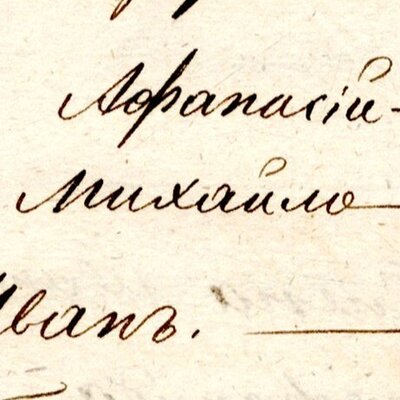 Афанасій
Михайло
Иванъ.